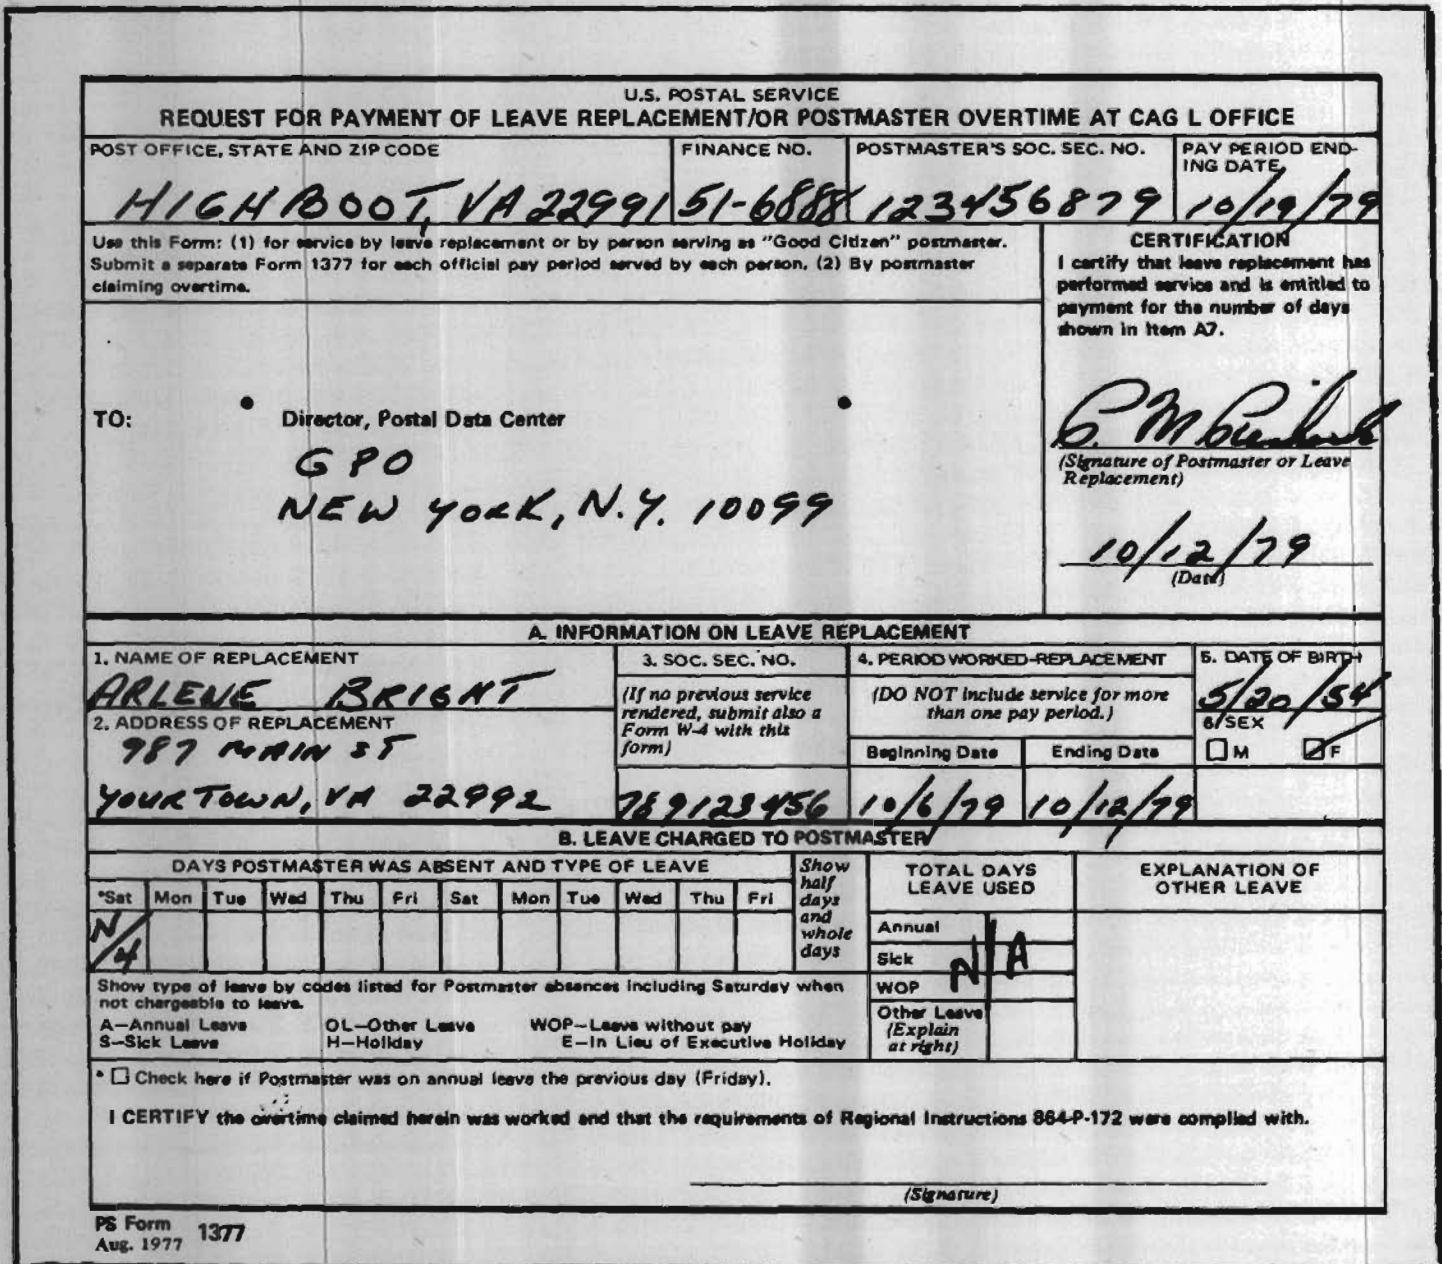 U.S. POSTAL SERVICE
REQUEST FOR PAYMENT OF LEAVE REPLACEMENT/OR POSTMASTER OVERTIME AT CAG L OFFICE
POST OFFICE, STATE AND ZIP CODE
HIGH BOOT, VA 22991
FINANCE NO.
51-6888
POSTMASTER'S SOC. SEC. NO.
123456879
PAY PERIOD END-
ING DATE
10/19/79
Use this Form: (1) for service by leave replacement or by person serving as "Good Citizen" postmaster.
Submit a separate Form 1377 for each official pay period served by each person. (2) By postmaster
claiming overtime.
CERTIFICATION
I certify that leave replacement has
performed service and is entitled to
payment for the number of days
shown in Item A7.
TO:
Director, Postal Data Center
GPO
NEW YORK, N.Y. 10099
(Signature of Postmaster or Leave
Replacement)
10/12/79
(Date)
A. INFORMATION ON LEAVE REPLACEMENT
1. NAME OF REPLACEMENT
ARLENE BRIGHT
2. ADDRESS OF REPLACEMENT
987 MAIN ST
YOUR TOWN, VA 22992
3. SOC. SEC. NO.
(If no previous service
rendered, submit also a
Form W-4 with this
form)
789123456
4. PERIOD WORKED-REPLACEMENT
(DO NOT include service for more
than one pay period.)
Beginning Date
10/6/79
Ending Date
10/12/79
5. DATE OF BIRTH
5/20/54
6/SEX
M F
B. LEAVE CHARGED TO POSTMASTER
DAYS POSTMASTER WAS ABSENT AND TYPE OF LEAVE
*Sat Mon Tue Wed Thu Fri Sat Mon Tue Wed Thu Fri
N/A
Show
half
days
and
whole
days
TOTAL DAYS
LEAVE USED
Annual
Sick
WOP
Other Leave
(Explain
at right)
N/A
EXPLANATION OF
OTHER LEAVE
Show type of leave by codes listed for Postmaster absences including Saturday when
not chargeable to leave.
A—Annual Leave OL—Other Leave WOP—Leave without pay
S—Sick Leave H—Holiday E—In Lieu of Executive Holiday
* Check here if Postmaster was on annual leave the previous day (Friday).
I CERTIFY the overtime claimed herein was worked and that the requirements of Regional Instructions 864-P-172 were complied with.
(Signature)
PS Form 1377
Aug. 1977